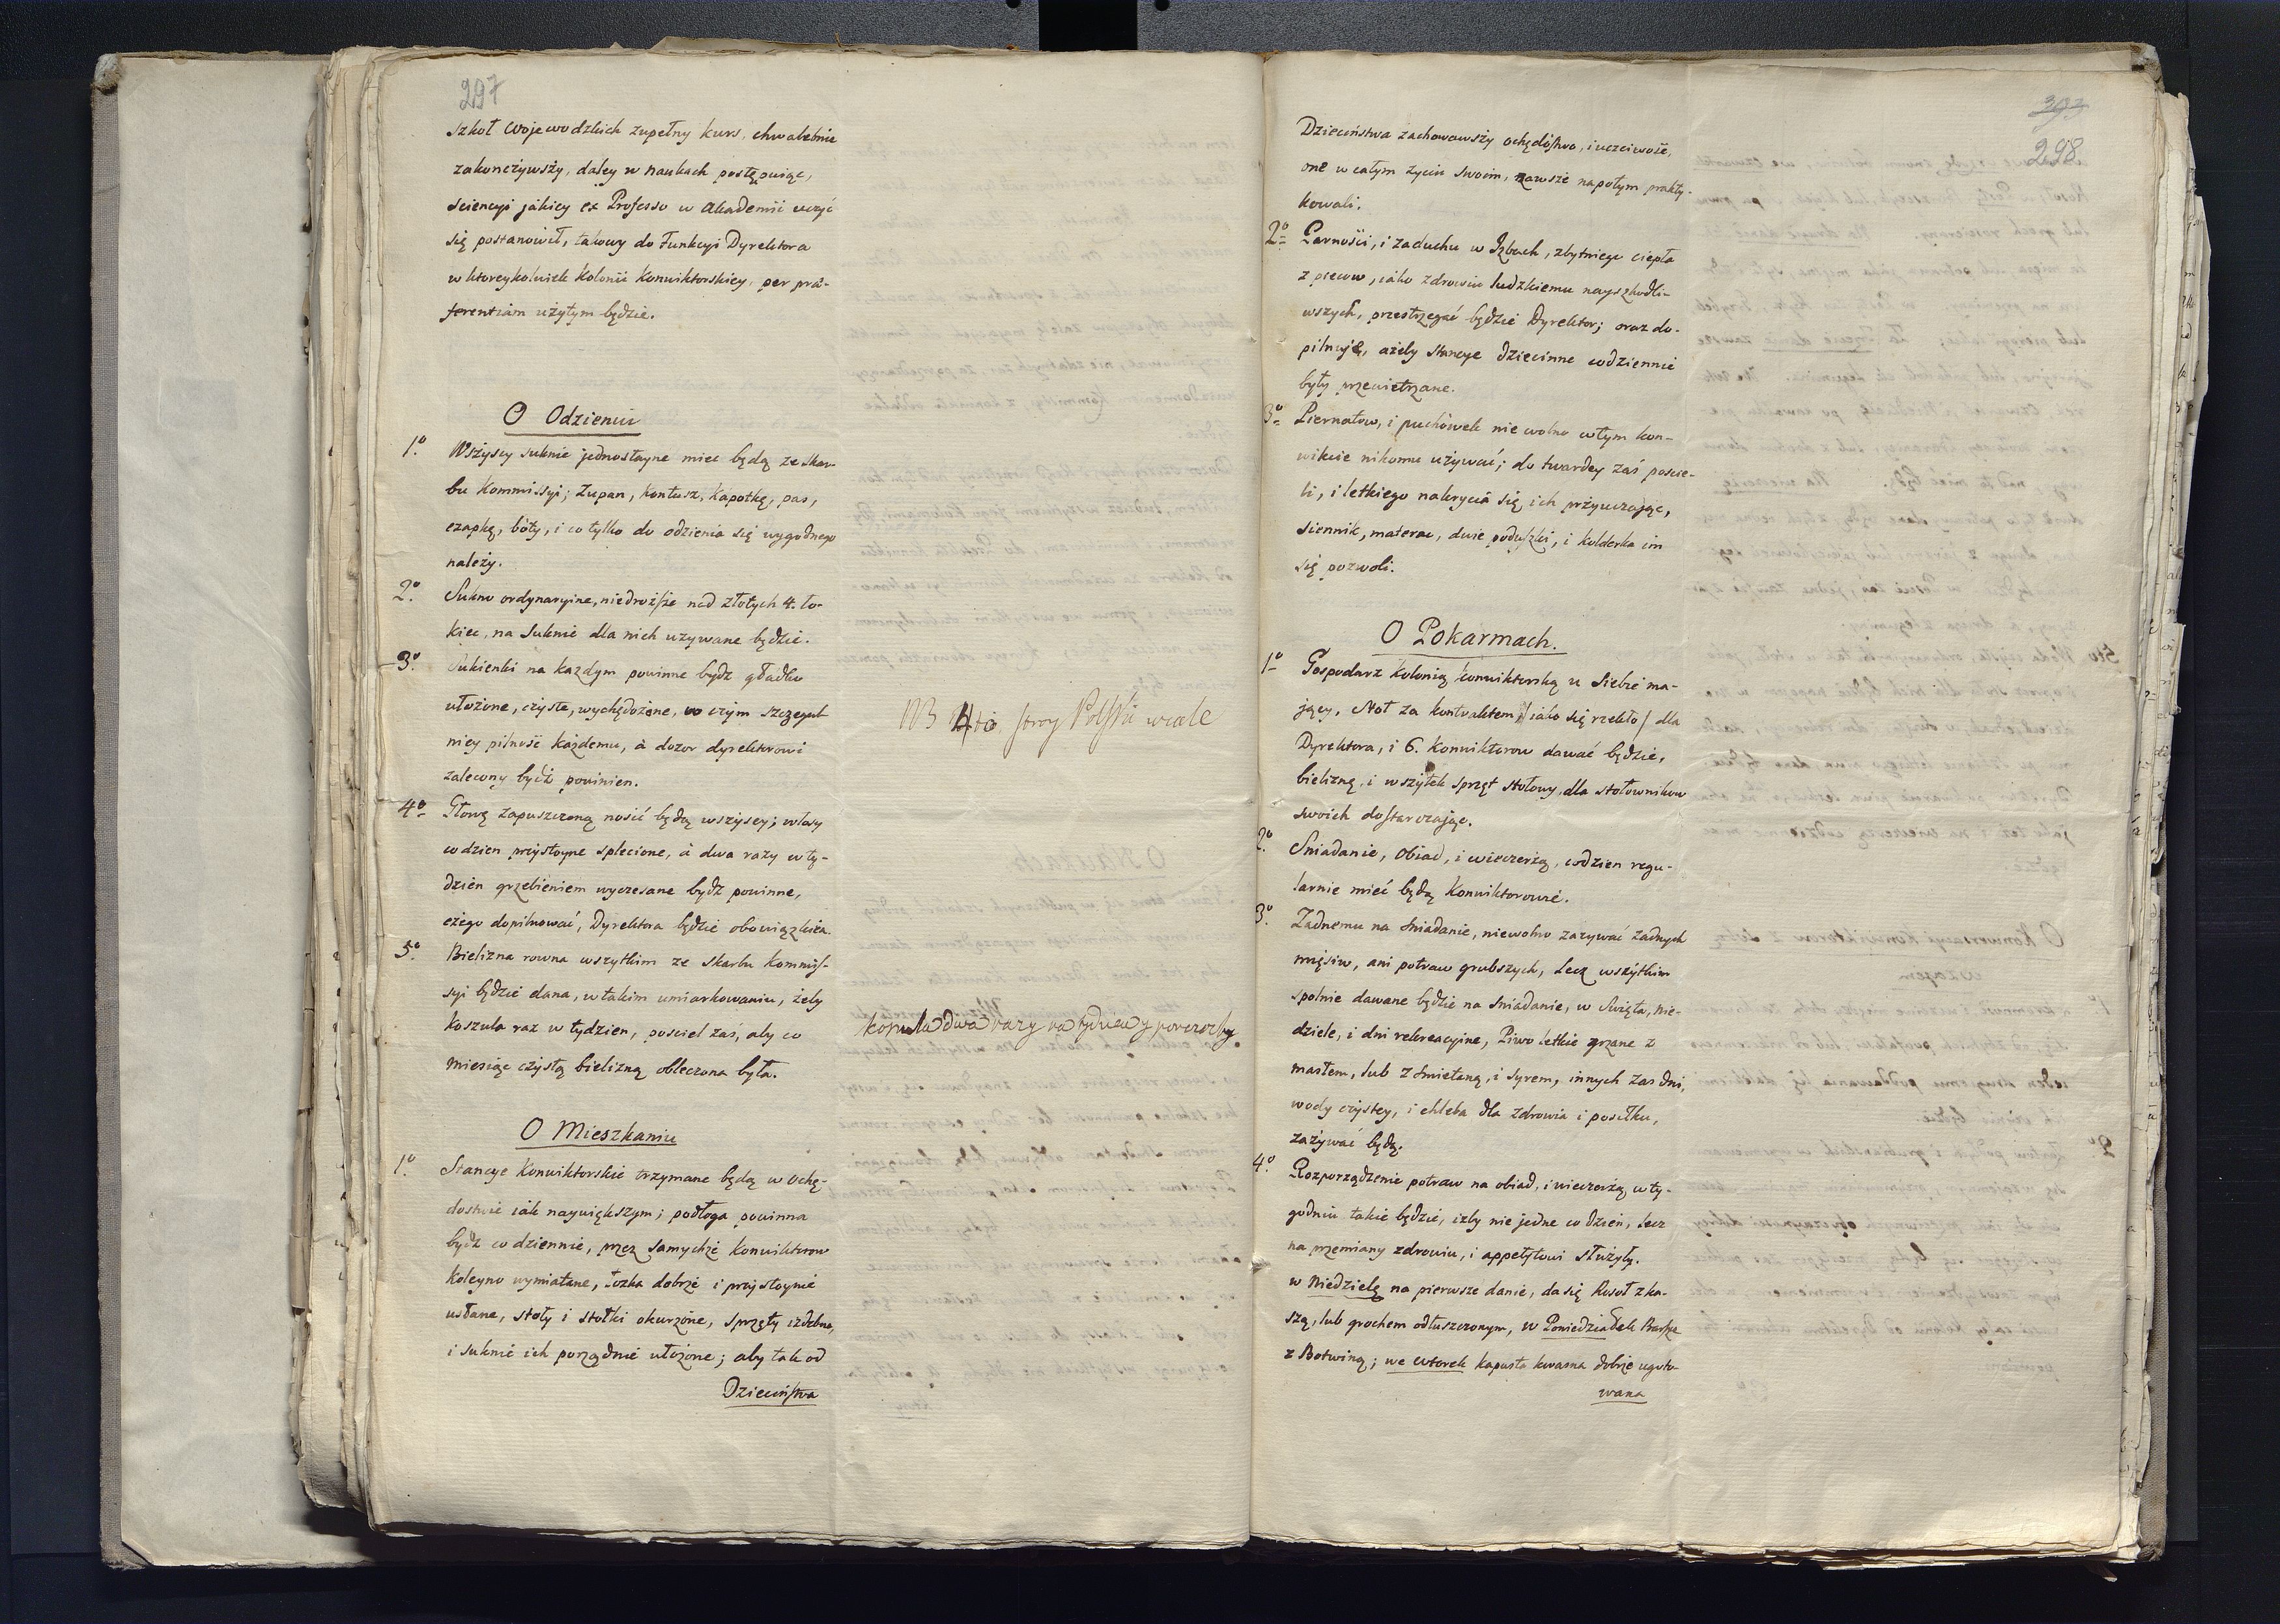 297
szkoł Wojewodzkich zupełny kurs, chwalebnie
zakonczywszy, daley w naukach postępuiąc,
sciencyi jakiey ex Professo w Akademii uczyć
się postanowił, takowy do Funkcyi Dyrektora
w ktoreykolwiek Kolonii Konwiktorskiey, per præ-
ferentiam użytym będzie.
O Odzieniu
1º. Wszyscy suknie jednostayne miec będą ze skar-
bu Kommissyi; Zupan, Kontusz, Kapotkę, pas,
czapkę, bóty, i co tylko do odzienia się wygodnego
należy.
2º. Sukno ordynaryine, niedroższe nad złotych 4. ło-
kiec, na Suknie dla nich uzywane będzie.
3º. Sukienki na kazdym powinne bydz gładko
ułożone, czyste, wychędożone, w czym szczegul-
niey pilność każdemu, à dozor dyrektorowi
zalecony bydź powinien.
NB 4to stroy Polski wcale
4º Głowę zapuszczoną nosić będą wszyscy; włosy
co dzien przystoyne splecione, à dwa razy w ty-
dzień grzebieniem wyczesane bydź powinne,
czego dopilnować, Dyrektora będzie obowiązkiem.
5º. Bielizna rowna wszytkim ze Skarbu Kommis-
syi będzie dana, w takim umiarkowaniu, żeby
Koszula raz w tydzien, posciel zaś, aby co
miesiąc czystą bielizną obleczona była.
koszula dwa razy na tydzien y ponczochy
O Mieszkaniu
1º. Stancye Konwiktorskie trzymane będą w ochę-
dostwie iak naywiększym; podłoga powinna
bydz co dziennie, przez samychże Konwiktorow
koleyno wymiatane, łozka dobrze i przystoynie
usłane, stoły i stołki okurzone, sprzęty izdebne,
i suknie ich porządnie ułożone; aby tak od
Dziecinstwa
298
Dziecinstwa zachowawszy ochędóstwo, i uczciwość,
one w całym zyciu swoim, zawsze napotym prakty-
kowali.
2º Parności, i zaduchu w Izbach, zbytniego ciepła
z piecow, iako zdrowiu ludzkiemu nayszkodli-
wszych, przestrzegać będzie Dyrektor; oraz do-
pilnuje, ażeby Stancye dziecinne codziennie
były przewietrzane.
3º Piernatow, i puchówek nie wolno w tym kon-
wikcie nikomu używać; do twardey zaś poscie-
li, i letkiego nakrycia się, ich przyuczając,
siennik, materac, dwie poduszki, i kołderka im
się pozwoli.
O Pokarmach.
1º Gospodarz Kolonią konwiktorską u siebie ma-
jący, Stoł za kontraktem / iako się rzekło / dla
Dyrektora, i 6. Konwiktorow dawać będzie,
bieliznę, i wszytek sprzęt stołowy, dla stołownikow
swoich dostarczając.
2º. Sniadanie, Obiad, i wieczerzą, codzien regu-
larnie mieć będą Konwiktorowie.
3º. Zadnemu na śniadanie, niewolno zazywać żadnych
mięsiw, ani potraw grubszych, Lecz wszytkim
spolnie dawane będzie na śniadanie, w Swięta, nie-
dziele, i dni rekreacyine, Piwo letkie grzane z
masłem, lub z śmietaną, i syrem, innych zaś dni,
wody czystey, i chleba dla zdrowia i posiłku,
zażywać będą.
4º. Rozporządzenie potraw na obiad, i wieczerzą w ty-
godniu takie będzie, izby nie jedne co dzień, lecz
na przemiany zdrowiu, i appetytowi służyły.
w Niedzielę na pierwsze danie, da się Rosoł z ka-
szą, lub grochem odtłuszczonym, w Poniedziałek Barszcz
z Botwiną; we wtorek kapusta kwasna dobrze ugoto-
wana